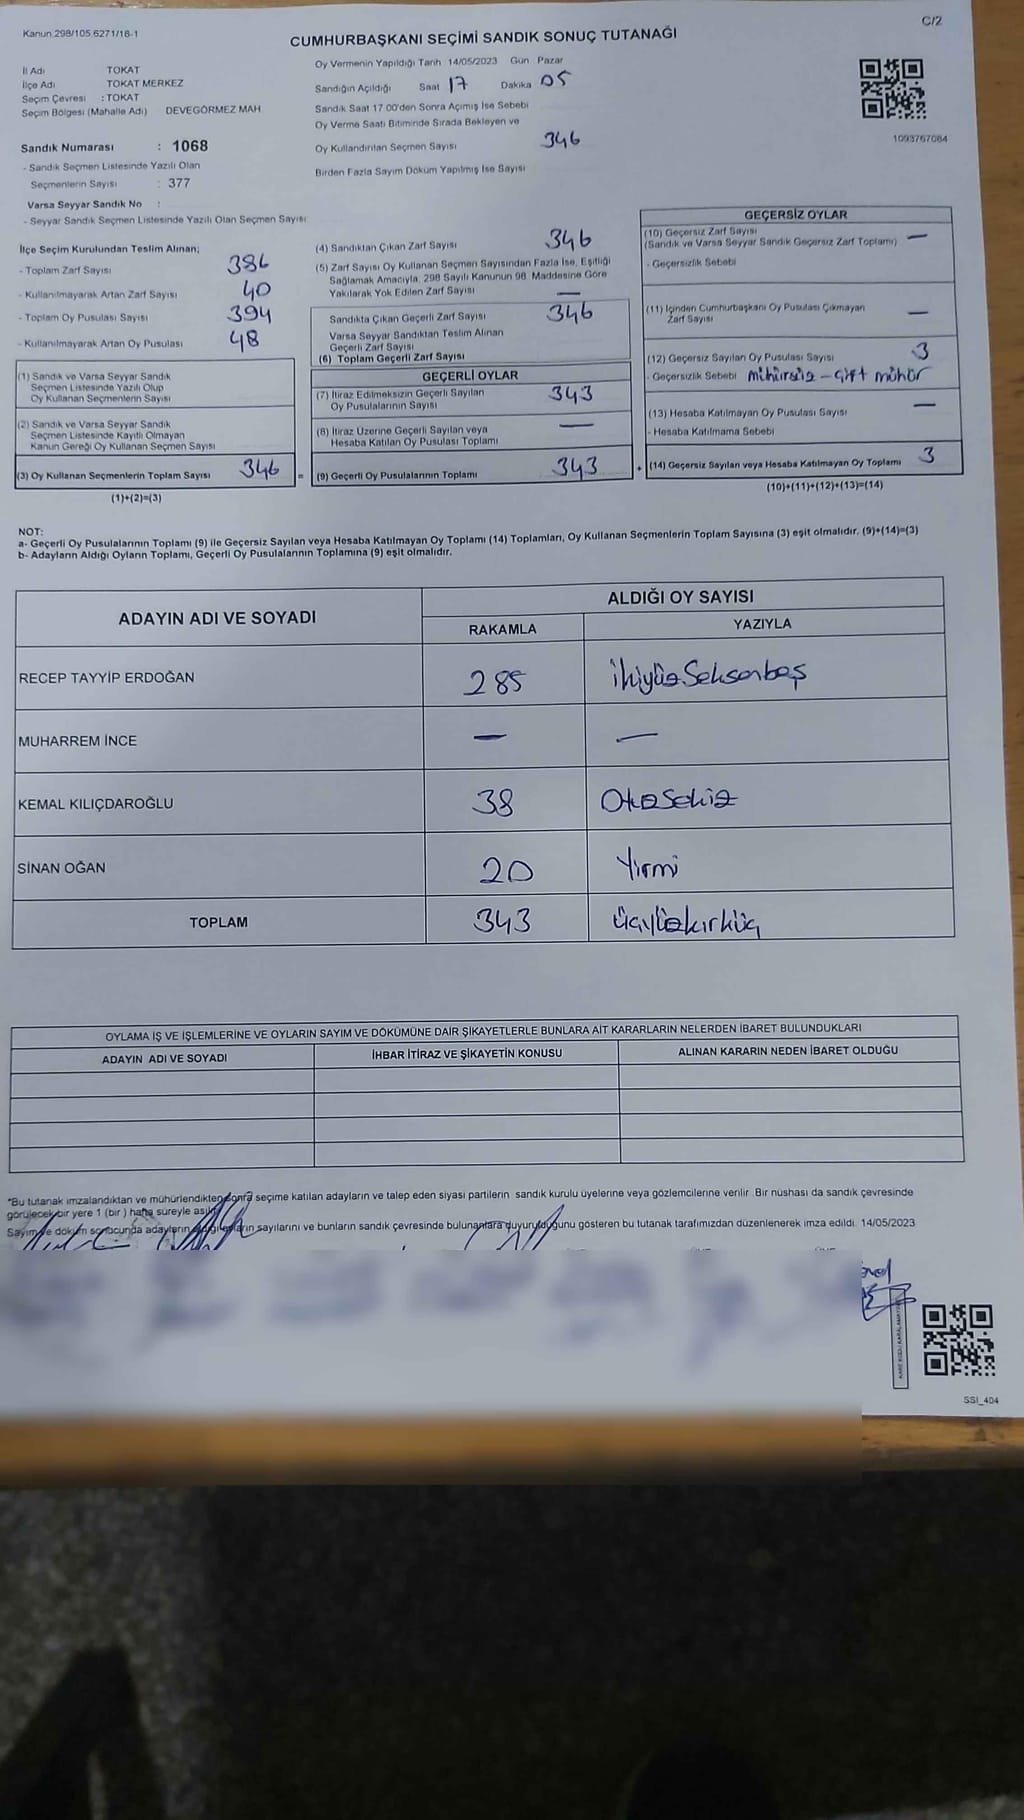 Kanun 298/105,6271/18-1
C/2
CUMHURBAŞKANI SEÇİMİ SANDIK SONUÇ TUTANAĞI
İl Adı TOKAT
İlçe Adı TOKAT MERKEZ
Seçim Çevresi : TOKAT
Seçim Bölgesi (Mahalle Adı) DEVEGÖRMEZ MAH.
Sandık Numarası : 1068
- Sandık Seçmen Listesinde Yazılı Olan
Seçmenlerin Sayısı : 377
Varsa Seyyar Sandık No :
- Seyyar Sandık Seçmen Listesinde Yazılı Olan Seçmen Sayısı
Oy Vermenin Yapıldığı Tarih 14/05/2023 Gün Pazar
Sandığın Açıldığı Saat 17 Dakika 05
Sandık Saat 17.00'den Sonra Açılmış İse Sebebi
Oy Verme Saati Bitiminde Sırada Bekleyen ve
Oy Kullandırılan Seçmen Sayısı 346
Birden Fazla Sayım Döküm Yapılmış İse Sayısı
1093767084
İlçe Seçim Kurulundan Teslim Alınan;
- Toplam Zarf Sayısı 386
- Kullanılmayarak Artan Zarf Sayısı 40
- Toplam Oy Pusulası Sayısı 394
- Kullanılmayarak Artan Oy Pusulası 48
(1) Sandık ve Varsa Seyyar Sandık
Seçmen Listesinde Yazılı Olup
Oy Kullanan Seçmenlerin Sayısı
(2) Sandık ve Varsa Seyyar Sandık
Seçmen Listesinde Kayıtlı Olmayan
Kanun Gereği Oy Kullanan Seçmen Sayısı
(3) Oy Kullanan Seçmenlerin Toplam Sayısı 346 =
(1)+(2)=(3)
(4) Sandıktan Çıkan Zarf Sayısı 346
(5) Zarf Sayısı Oy Kullanan Seçmen Sayısından Fazla İse, Eşitliği
Sağlamak Amacıyla, 298 Sayılı Kanunun 98. Maddesine Göre
Yakılarak Yok Edilen Zarf Sayısı —
Sandıkta Çıkan Geçerli Zarf Sayısı 346
Varsa Seyyar Sandıktan Teslim Alınan
Geçerli Zarf Sayısı
(6) Toplam Geçerli Zarf Sayısı
GEÇERLİ OYLAR
(7) İtiraz Edilmeksizin Geçerli Sayılan
Oy Pusulalarının Sayısı 343
(8) İtiraz Üzerine Geçerli Sayılan veya
Hesaba Katılan Oy Pusulası Toplamı —
(9) Geçerli Oy Pusulalarının Toplamı 343 +
GEÇERSİZ OYLAR
(10) Geçersiz Zarf Sayısı
(Sandık ve Varsa Seyyar Sandık Geçersiz Zarf Toplamı) —
- Geçersizlik Sebebi
(11) İçinden Cumhurbaşkanı Oy Pusulası Çıkmayan
Zarf Sayısı —
(12) Geçersiz Sayılan Oy Pusulası Sayısı 3
- Geçersizlik Sebebi mühürsüz - çift mühür
(13) Hesaba Katılmayan Oy Pusulası Sayısı —
- Hesaba Katılmama Sebebi
(14) Geçersiz Sayılan veya Hesaba Katılmayan Oy Toplamı 3
(10)+(11)+(12)+(13)=(14)
NOT:
a- Geçerli Oy Pusulalarının Toplamı (9) ile Geçersiz Sayılan veya Hesaba Katılmayan Oy Toplamı (14) Toplamları, Oy Kullanan Seçmenlerin Toplam Sayısına (3) eşit olmalıdır. (9)+(14)=(3)
b- Adayların Aldığı Oyların Toplamı, Geçerli Oy Pusulalarının Toplamına (9) eşit olmalıdır.
ADAYIN ADI VE SOYADI ALDIĞI OY SAYISI
RAKAMLA YAZIYLA
RECEP TAYYİP ERDOĞAN 285 ikiyüzSeksenbeş
MUHARREM İNCE — —
KEMAL KILIÇDAROĞLU 38 OtuzSekiz
SİNAN OĞAN 20 Yirmi
TOPLAM 343 üçyüzkırküç
OYLAMA İŞ VE İŞLEMLERİNE VE OYLARIN SAYIM VE DÖKÜMÜNE DAİR ŞİKAYETLERLE BUNLARA AİT KARARLARIN NELERDEN İBARET BULUNDUKLARI
ADAYIN ADI VE SOYADI İHBAR İTİRAZ VE ŞİKAYETİN KONUSU ALINAN KARARIN NEDEN İBARET OLDUĞU
*Bu tutanak imzalandıktan ve mühürlendikten sonra seçime katılan adayların ve talep eden siyasi partilerin sandık kurulu üyelerine veya gözlemcilerine verilir. Bir nüshası da sandık çevresinde
görülecek bir yere 1 (bir) hafta süreyle asılır.
Sayım ve döküm sonucunda adayların sayılarını ve bunların sandık çevresinde bulunanlara duyurulduğunu gösteren bu tutanak tarafımızdan düzenlenerek imza edildi. 14/05/2023
SSI_404